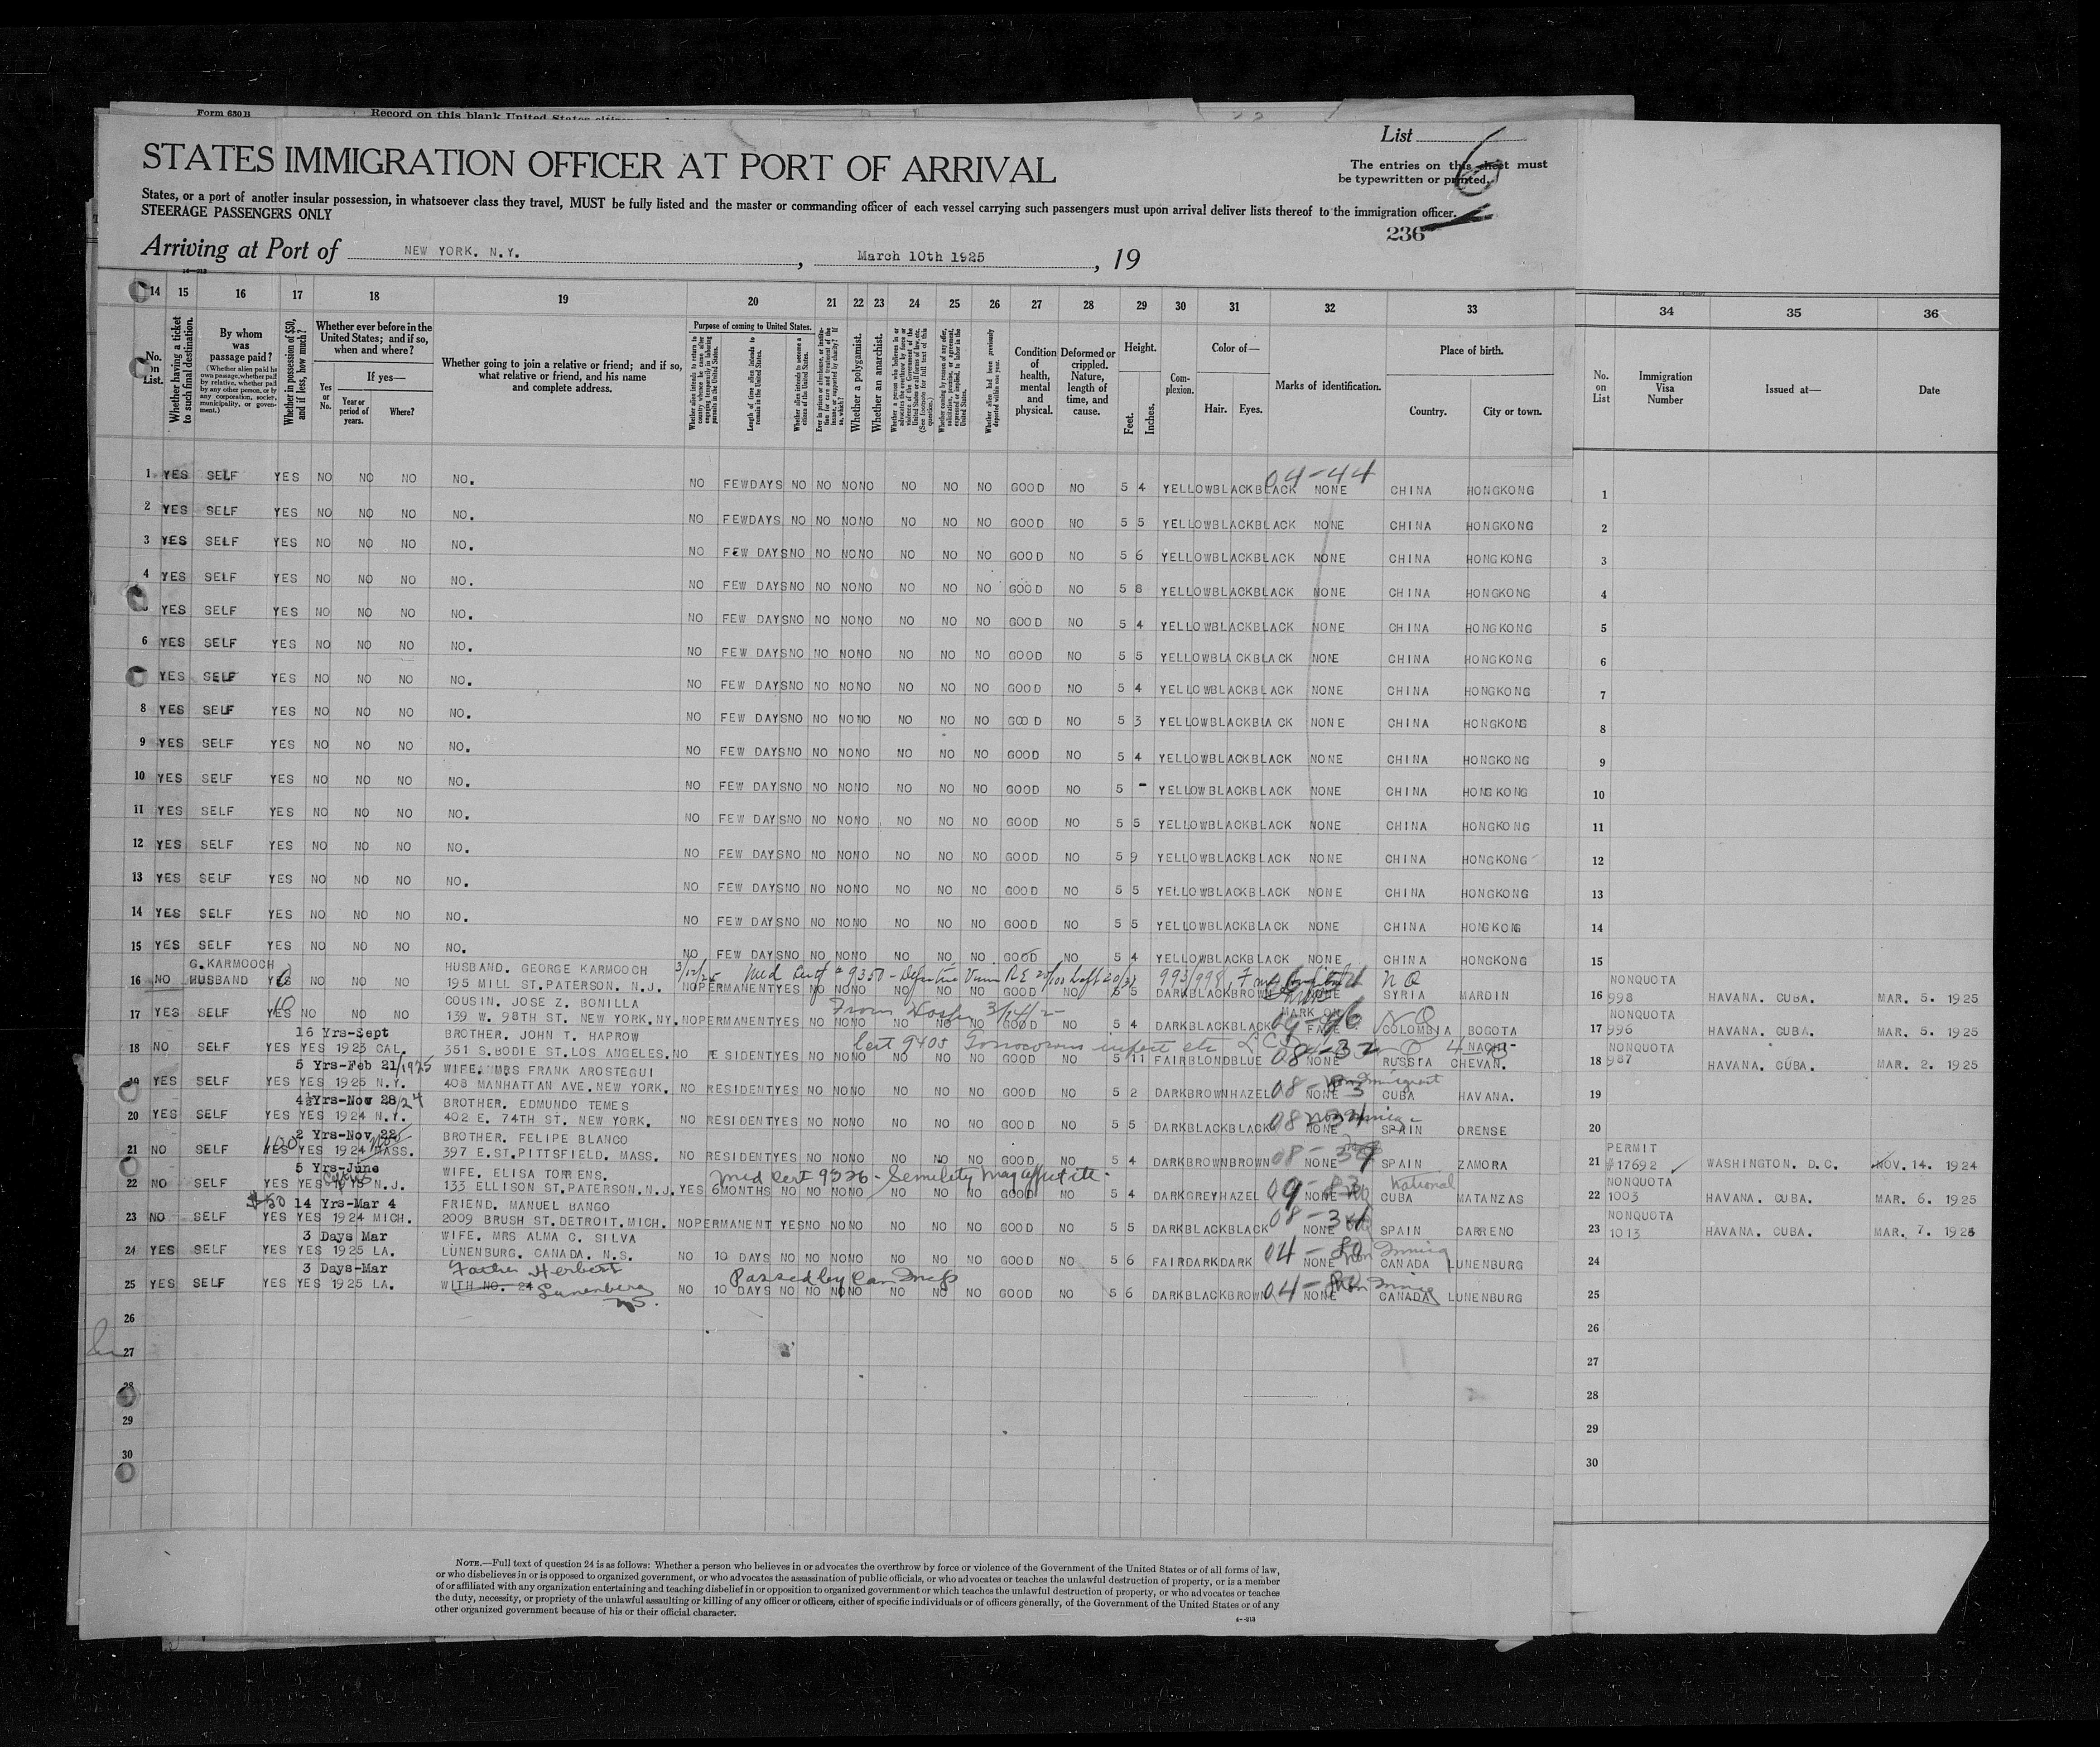 Form 630 B
Record on this blank United States
List
6
STATES IMMIGRATION OFFICER AT PORT OF ARRIVAL
The entries on this sheet must
be typewritten or printed.
States, or a port of another insular possession, in whatsoever class they travel, MUST be fully listed and the master or commanding officer of each vessel carrying such passengers must upon arrival deliver lists thereof to the immigration officer.
STEERAGE PASSENGERS ONLY
236
Arriving at Port of NEW YORK. N.Y. , March 10th 1925 , 19
14 15 16 17 18 19 20 21 22 23 24 25 26 27 28 29 30 31 32 33 34 35 36
No. on List.
Whether having a ticket to such final destination.
By whom was passage paid?
(Whether alien paid his own passage, whether paid by relative, whether paid by any other person, or by any corporation, society, municipality, or government.)
Whether in possession of $50, and if less, how much?
Whether ever before in the United States; and if so, when and where?
Yes or No.
If yes—
Year or period of years.
Where?
Whether going to join a relative or friend; and if so, what relative or friend, and his name and complete address.
Purpose of coming to United States.
Length of time alien intends to remain in the United States.
Whether alien intends to become a citizen of the United States.
Whether a polygamist.
Whether an anarchist.
Condition of health, mental and physical.
Deformed or crippled. Nature, length of time, and cause.
Height.
Feet. Inches.
Complexion.
Color of—
Hair. Eyes.
Marks of identification.
Place of birth.
Country. City or town.
No. on List
Immigration Visa Number
Issued at—
Date
04-44
1 YES SELF YES NO NO NO NO. NO FEWDAYS NO NO NO NO NO NO NO GOOD NO 5 4 YELLOW BLACK BLACK NONE CHINA HONGKONG 1
2 YES SELF YES NO NO NO NO. NO FEWDAYS NO NO NO NO NO NO NO GOOD NO 5 5 YELLOW BLACK BLACK NONE CHINA HONGKONG 2
3 YES SELF YES NO NO NO NO. NO FEW DAYS NO NO NO NO NO NO NO GOOD NO 5 6 YELLOW BLACK BLACK NONE CHINA HONGKONG 3
4 YES SELF YES NO NO NO NO. NO FEW DAYS NO NO NO NO NO NO NO GOOD NO 5 8 YELLOW BLACK BLACK NONE CHINA HONGKONG 4
YES SELF YES NO NO NO NO. NO FEW DAYS NO NO NO NO NO NO NO GOOD NO 5 4 YELLOW BLACK BLACK NONE CHINA HONGKONG 5
6 YES SELF YES NO NO NO NO. NO FEW DAYS NO NO NO NO NO NO NO GOOD NO 5 5 YELLOW BLACK BLACK NONE CHINA HONGKONG 6
YES SELF YES NO NO NO NO. NO FEW DAYS NO NO NO NO NO NO NO GOOD NO 5 4 YELLOW BLACK BLACK NONE CHINA HONGKONG 7
8 YES SELF YES NO NO NO NO. NO FEW DAYS NO NO NO NO NO NO NO GOOD NO 5 3 YELLOW BLACK BLACK NONE CHINA HONGKONG 8
9 YES SELF YES NO NO NO NO. NO FEW DAYS NO NO NO NO NO NO NO GOOD NO 5 4 YELLOW BLACK BLACK NONE CHINA HONGKONG 9
10 YES SELF YES NO NO NO NO. NO FEW DAYS NO NO NO NO NO NO NO GOOD NO 5 - YELLOW BLACK BLACK NONE CHINA HONGKONG 10
11 YES SELF YES NO NO NO NO. NO FEW DAYS NO NO NO NO NO NO NO GOOD NO 5 5 YELLOW BLACK BLACK NONE CHINA HONGKONG 11
12 YES SELF YES NO NO NO NO. NO FEW DAYS NO NO NO NO NO NO NO GOOD NO 5 9 YELLOW BLACK BLACK NONE CHINA HONGKONG 12
13 YES SELF YES NO NO NO NO. NO FEW DAYS NO NO NO NO NO NO NO GOOD NO 5 5 YELLOW BLACK BLACK NONE CHINA HONGKONG 13
14 YES SELF YES NO NO NO NO. NO FEW DAYS NO NO NO NO NO NO NO GOOD NO 5 5 YELLOW BLACK BLACK NONE CHINA HONGKONG 14
15 YES SELF YES NO NO NO NO. NO FEW DAYS NO NO NO NO NO NO NO GOOD NO 5 4 YELLOW BLACK BLACK NONE CHINA HONGKONG 15
G. KARMOOCH HUSBAND. GEORGE KARMOOCH 3/12/25 Med Cert # 9350 - Defective Vision RE 20/100 Left 993/998 N Q NONQUOTA
16 NO HUSBAND YES NO NO NO 195 MILL ST. PATERSON. N.J. NO PERMANENT YES NO NO NO NO NO NO GOOD NO 5 5 DARK BLACK BROWN NONE SYRIA MARDIN 16 998 HAVANA. CUBA. MAR. 5. 1925
COUSIN. JOSE Z. BONILLA From Hosp 3/14/2 MARK ON NONQUOTA
17 YES SELF YES NO NO NO 139 W. 98TH ST. NEW YORK, NY. NO PERMANENT YES NO NO NO NO NO NO GOOD NO 5 4 DARK BLACK BLACK FACE 09-96 COLOMBIA BOGOTA 17 996 HAVANA. CUBA. MAR. 5. 1925
16 Yrs-Sept BROTHER. JOHN T. HAPROW Cert 9405 NACHI- NONQUOTA
18 NO SELF YES YES 1923 CAL. 351 S. BODIE ST. LOS ANGELES. NO RESIDENT YES NO NO NO NO NO NO GOOD NO 5 11 FAIR BLOND BLUE 08-32 NONE RUSSIA CHEVAN. 18 987 HAVANA. CUBA. MAR. 2. 1925
5 Yrs-Feb 21/1925 WIFE. MRS FRANK AROSTEGUI Non Immigrant
19 YES SELF YES YES 1925 N.Y. 408 MANHATTAN AVE. NEW YORK. NO RESIDENT YES NO NO NO NO NO NO GOOD NO 5 2 DARK BROWN HAZEL 08-83 NONE CUBA HAVANA. 19
4½Yrs-Nov 28/24 BROTHER. EDMUNDO TEMES
20 YES SELF YES YES 1924 N.Y. 402 E. 74TH ST. NEW YORK. NO RESIDENT YES NO NO NO NO NO NO GOOD NO 5 5 DARK BLACK BLACK NONE SPAIN ORENSE 20
2 Yrs-Nov 22 BROTHER. FELIPE BLANCO PERMIT
21 NO SELF YES YES 1924 MASS. 397 E. ST. PITTSFIELD. MASS. NO RESIDENT YES NO NO NO NO NO NO GOOD NO 5 4 DARK BROWN BROWN NONE SPAIN ZAMORA 21 #17692 WASHINGTON. D.C. NOV. 14. 1924
5 Yrs-June WIFE. ELISA TORRENS. Med Cert 9326 - Senility may affect etc. NONQUOTA
22 NO SELF YES YES 1915 N.J. 133 ELLISON ST. PATERSON. N.J. YES 6MONTHS NO NO NO NO NO NO NO GOOD NO 5 4 DARK GREY HAZEL 09-83 NONE CUBA MATANZAS 22 1003 HAVANA. CUBA. MAR. 6. 1925
$50 14 Yrs-Mar 4 FRIEND. MANUEL BANGO NONQUOTA
23 NO SELF YES YES 1924 MICH. 2009 BRUSH ST. DETROIT. MICH. NO PERMANENT YES NO NO NO NO NO NO GOOD NO 5 5 DARK BLACK BLACK 08-34 NONE SPAIN CARRENO 23 1013 HAVANA. CUBA. MAR. 7. 1925
3 Days Mar WIFE. MRS ALMA C. SILVA
24 YES SELF YES YES 1925 LA. LUNENBURG. CANADA. N.S. NO 10 DAYS NO NO NO NO NO NO NO GOOD NO 5 6 FAIR DARK DARK 04-80 NONE CANADA LUNENBURG 24
3 Days-Mar Father Herbert Passed by Can Insp
25 YES SELF YES YES 1925 LA. WITH NO. 24 Lunenberg N.S. NO 10 DAYS NO NO NO NO NO NO NO GOOD NO 5 6 DARK BLACK BROWN 04-80 NONE CANADA LUNENBURG 25
26 26
27 27
28 28
29 29
30 30
NOTE.—Full text of question 24 is as follows: Whether a person who believes in or advocates the overthrow by force or violence of the Government of the United States or of all forms of law,
or who disbelieves in or is opposed to organized government, or who advocates the assassination of public officials, or who advocates or teaches the unlawful destruction of property, or is a member
of or affiliated with any organization entertaining and teaching disbelief in or opposition to organized government or which teaches the unlawful destruction of property, or who advocates or teaches
the duty, necessity, or propriety of the unlawful assaulting or killing of any officer or officers, either of specific individuals or of officers generally, of the Government of the United States or of any
other organized government because of his or their official character.